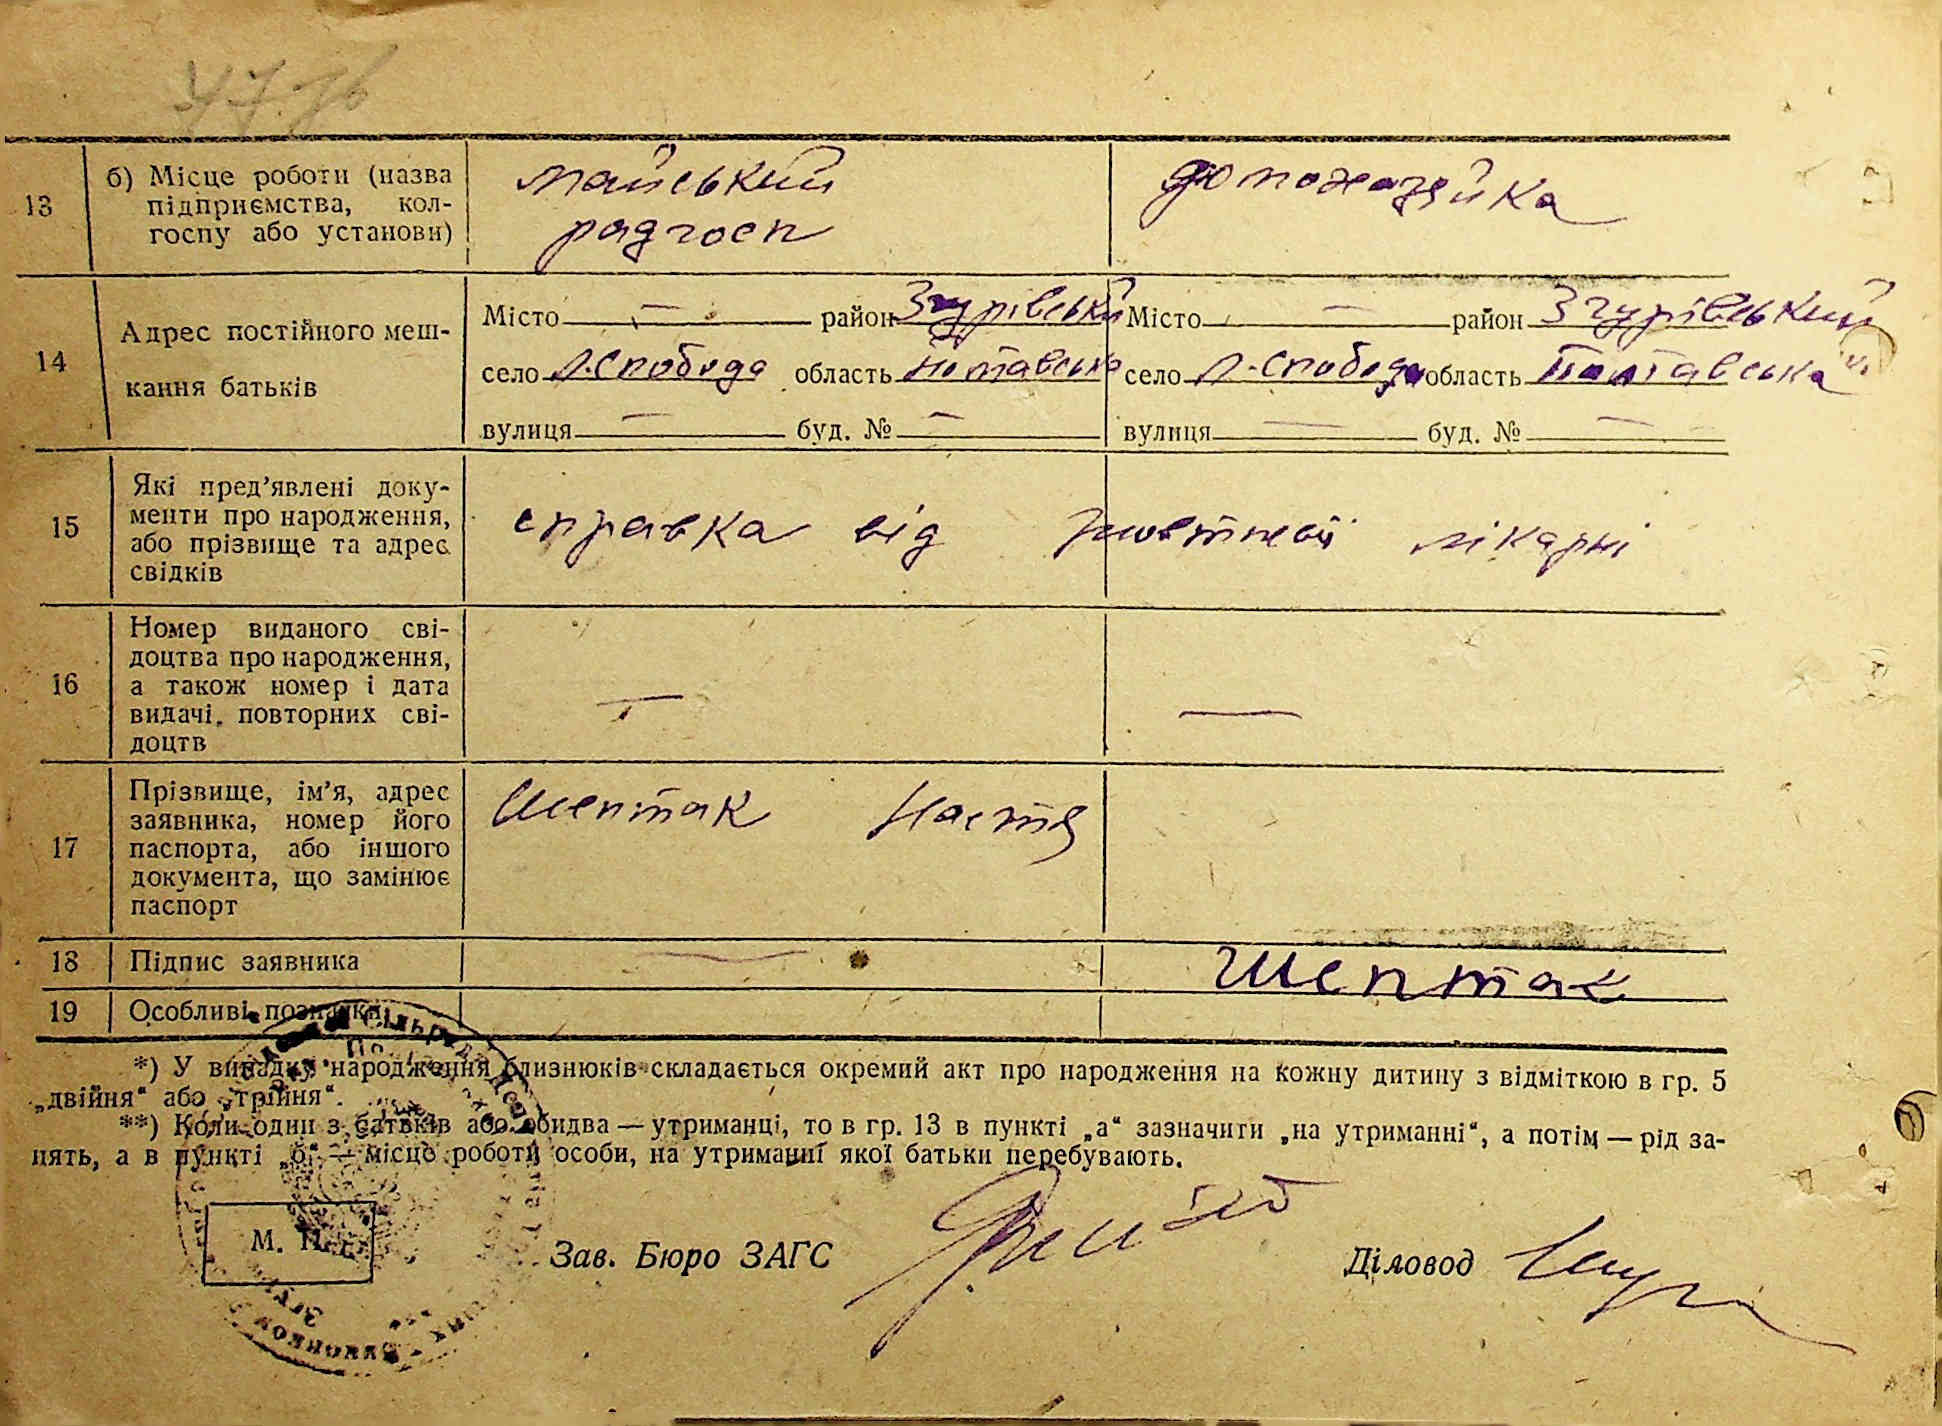 13
б) Місце роботи (назва
підприємства, кол-
госпу або установи)
майський
радгосп
домохазяйка
14
Адрес постійного меш-
кання батьків
Місто — район Згурівський
село Л. Слобода область Полтавська
вулиця — буд. № —
Місто — район Згурівський
село Л. Слобода область Полтавська
вулиця — буд. № —
15
Які пред’явлені доку-
менти про народження,
або прізвище та адрес
свідків
справка від жовтневої лікарні
16
Номер виданого сві-
доцтва про народження,
а також номер і дата
видачі, повторних сві-
доцтв
—
—
17
Прізвище, ім’я, адрес
заявника, номер його
паспорта, або іншого
документа, що замінює
паспорт
Шептак Настя
18
Підпис заявника
—
Шептак
19
Особливі позначки
*) У випадку народження близнюків складається окремий акт про народження на кожну дитину з відміткою в гр. 5
„двійня“ або „трійня“.
**) Коли один з батьків або обидва — утриманці, то в гр. 13 в пункті „а“ зазначити „на утриманні“, а потім — рід за-
нять, а в пункті „б“ — місце роботи особи, на утриманні якої батьки перебувають.
М. П.
Зав. Бюро ЗАГС
Діловод